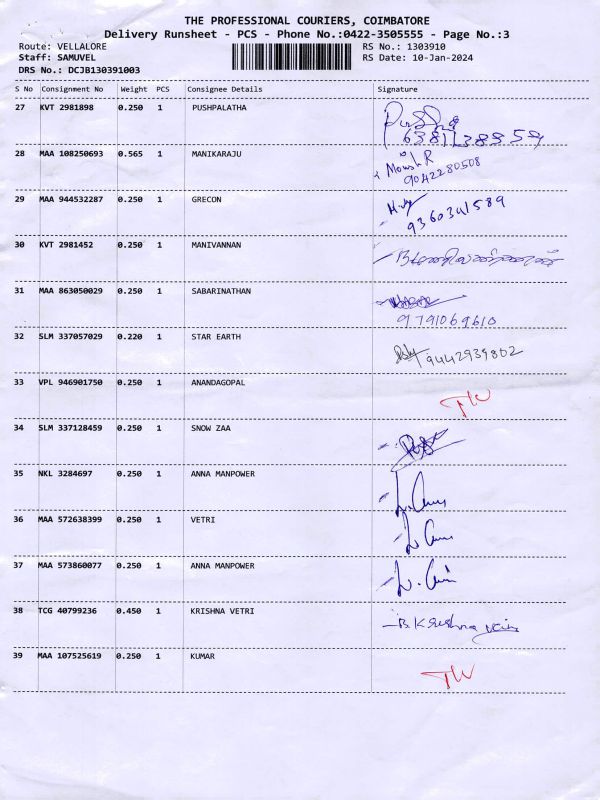 THE PROFESSIONAL COURIERS, COIMBATORE
Delivery Runsheet - PCS - Phone No.:0422-3505555 - Page No.:3
Route: VELLALORE RS No.: 1303910
Staff: SAMUVEL RS Date: 10-Jan-2024
DRS No.: DCJB130391003
S No Consignment No Weight PCS Consignee Details Signature
27 KVT 2981898 0.250 1 PUSHPALATHA
28 MAA 108250693 0.565 1 MANIKARAJU
9042280508
29 MAA 944532287 0.250 1 GRECON
9360341589
30 KVT 2981452 0.250 1 MANIVANNAN
31 MAA 863050029 0.250 1 SABARINATHAN
9791069610
32 SLM 337057029 0.220 1 STAR EARTH
9442939802
33 VPL 946901750 0.250 1 ANANDAGOPAL
34 SLM 337128459 0.250 1 SNOW ZAA
35 NKL 3284697 0.250 1 ANNA MANPOWER
36 MAA 572638399 0.250 1 VETRI
37 MAA 573860077 0.250 1 ANNA MANPOWER
38 TCG 40799236 0.450 1 KRISHNA VETRI
39 MAA 107525619 0.250 1 KUMAR